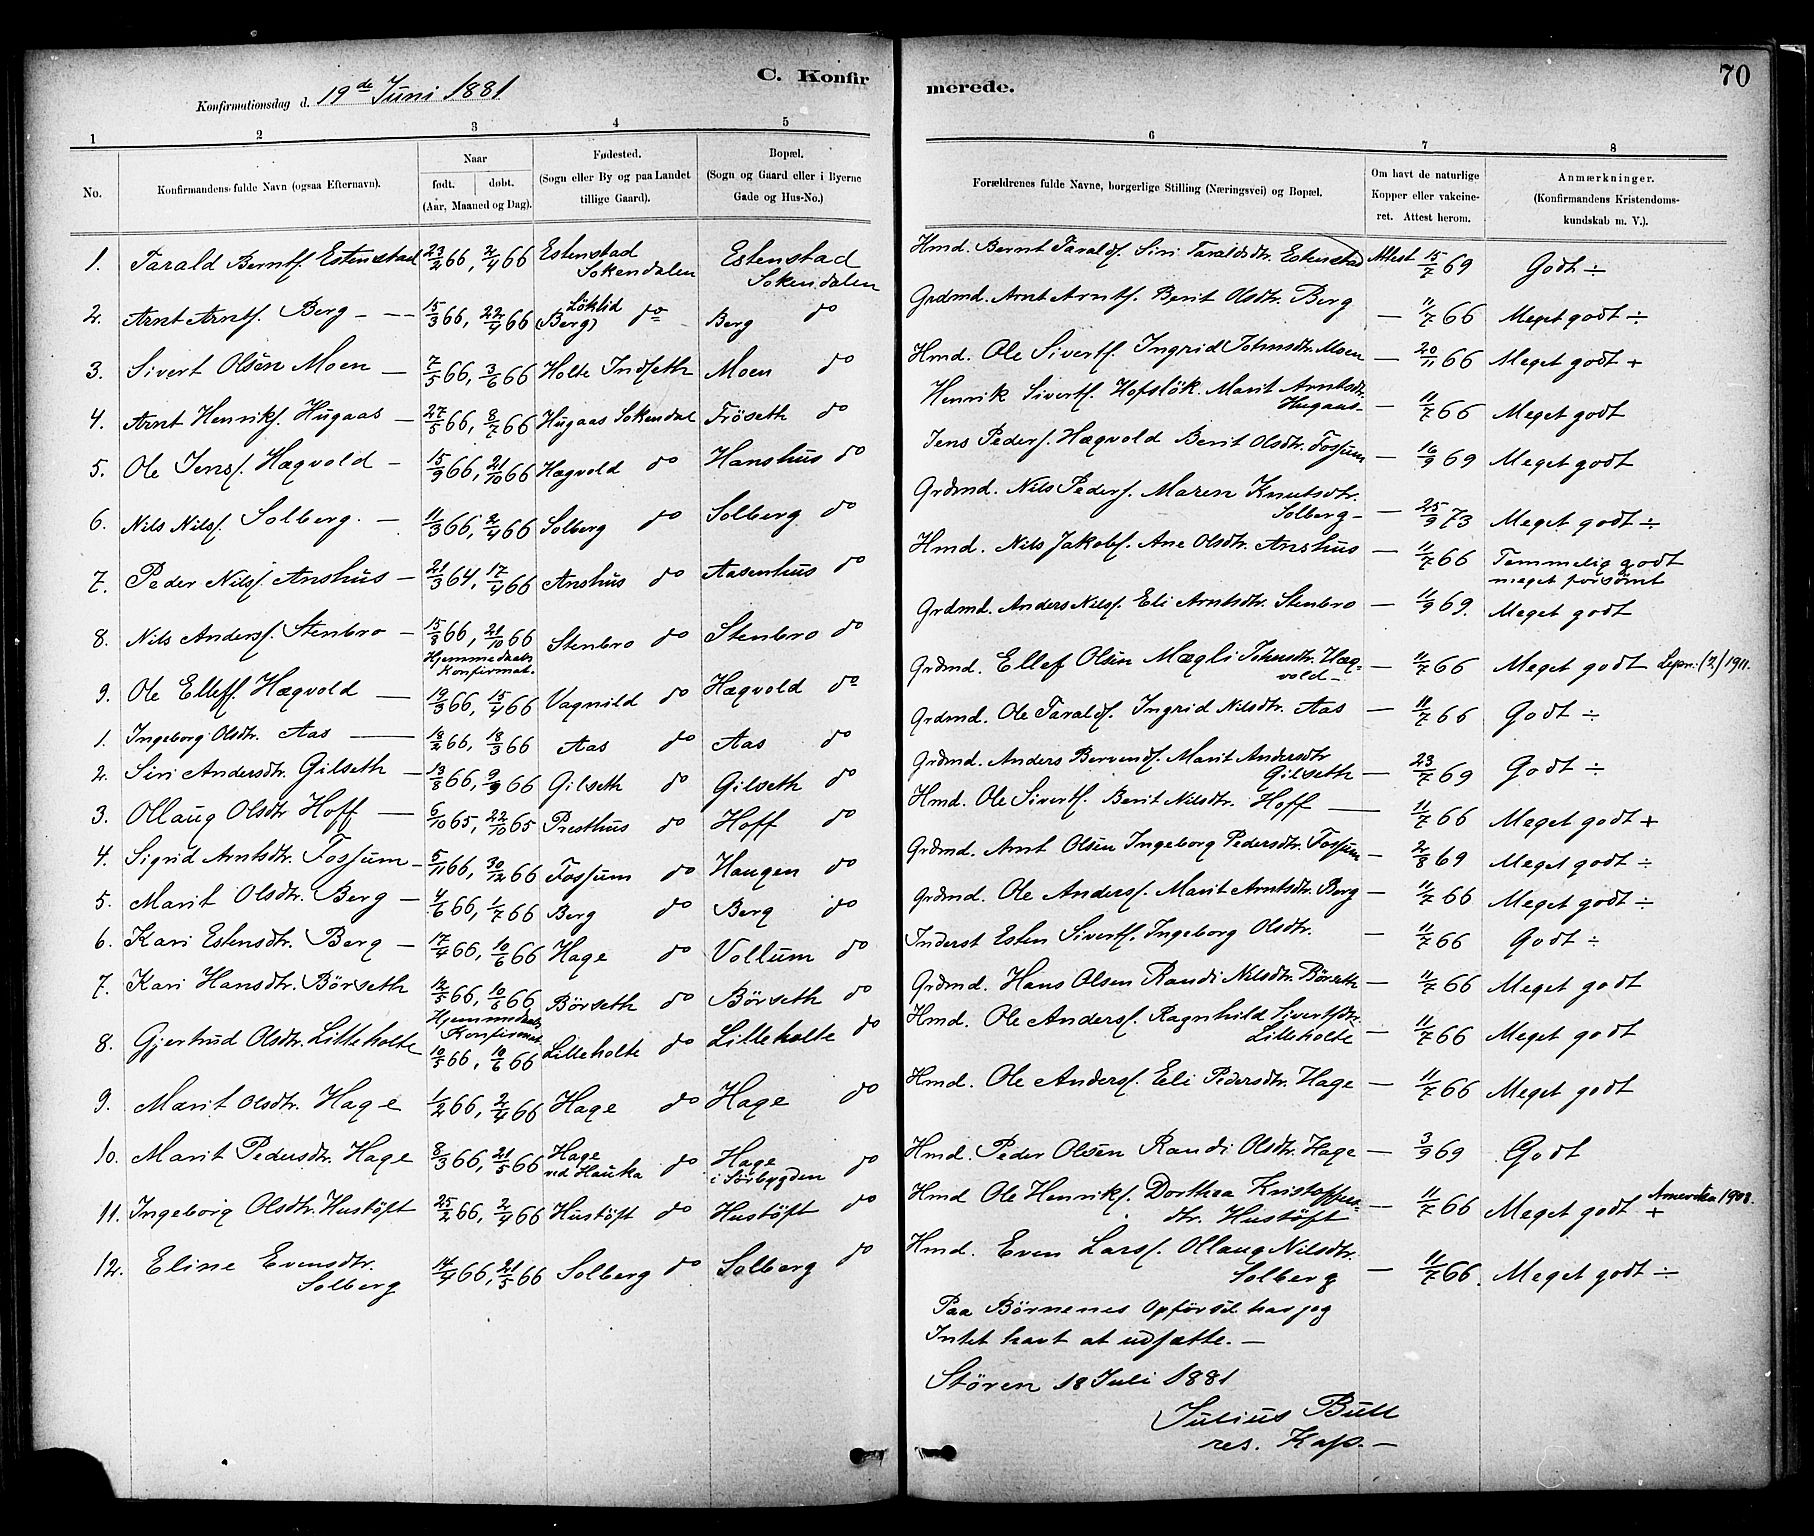 Konfirmationsdag d. 19de Juni 1881
C. Konfirmerede.
70
1 2 3 4 5 6 7 8
No. Konfirmandens fulde Navn (ogsaa Efternavn). Naar født. døbt. (Aar, Maaned og Dag). Fødested. (Sogn eller By og paa Landet tillige Gaard). Bopæl. (Sogn og Gaard eller i Byerne Gade og Hus-No.) Forældrenes fulde Navne, borgerlige Stilling (Næringsvei) og Bopæl. Om havt de naturlige Kopper eller vakcineret. Attest herom. Anmærkninger. (Konfirmandens Kristendomskundskab m. V.).
1. Tarald Berntſ. Estenstad 23/2 66, 2/4 66 Estenstad Sokendalen Estenstad Sokendalen Hmd. Bernt Taraldſ. Siri Taraldsdtr. Estenstad Attest 15/7 69 Godt ÷
2. Arnt Arntſ. Berg – — 15/3 66, 22/4 66 Löklid (Berg) do Berg do Grdmd. Arnt Arntſ. Berit Olsdtr. Berg — 11/7 66 Meget godt ÷
3. Sivert Olsen Moen — 7/5 66, 3/6 66 Holte Indſeth Moen do Hmd. Ole Sivertſ. Ingrid Johnsdtr. Moen — 20/11 66 Meget godt +
4. Arnt Henrikſ. Hugaas — 27/5 66, 8/7 66 Hugaas Sokendal Fröseth do Henrik Sivertſ. Hofslök. Marit Arntsdtr. Hugaas — 11/7 66 Meget godt
5. Ole Jensſ. Hægvold — 15/9 66, 21/10 66 Hægvold do Hanshus do Jens Pederſ. Hægvold Berit Olsdtr. Fosſum — 16/9 69 Meget godt
6. Nils Nilsſ. Solberg. — 11/3 66, 2/4 66 Solberg do Solberg do Grdmd. Nils Pederſ. Maren Knutsdtr. Solberg — 25/9 73 Meget godt ÷
7. Peder Nilsſ. Anshus — 21/3 64, 17/4 66 Anshus do Aasenhus do Hmd. Nils Jakobſ. Ane Olsdtr. Anshus — 11/7 66 Temmelig godt meget forsömt
8. Nils Andersſ. Stenbro — 15/8 66, 21/10 66 Hjemmedøbt Konfirmat. Stenbro do Stenbro do Grdmd. Anders Nilsſ. Eli Arntsdtr. Stenbro — 11/9 69. Meget godt
9. Ole Ellefſ. Hægvold — 19/3 66, 15/4 66 Vagnild do Hægvold do Grdmd. Ellef Olsen Magli Johnsdtr. Hægvold — 11/7 66 Meget godt Lepr. (2) 1911.
1. Ingeborg Olsdtr. Aas — 18/2 66, 18/3 66 Aas do Aas do Grdmd. Ole Taraldſ. Ingrid Nilsdtr. Aas — 11/7 66 Godt ÷
2. Siri Andersdtr. Gilseth — 13/8 66, 9/9 66 Gilseth do Gilseth do Grdmd. Anders Berventſ. Marit Andersdtr Gilseth — 23/7 69 Godt ÷
3. Ollaug Olsdtr Hoff — 6/10 65, 22/10 65 Presthus do Hoff do Hmd. Ole Sivertſ. Berit Nilsdtr. Hoff — 11/7 66 Meget godt +
4. Sigrid Arntsdtr. Fosſum — 5/11 66, 30/12 66 Fosſum do Haugen do Grdmd. Arnt Olsen Ingeborg Pedersdtr. Fosſum — 2/8 69 Meget godt ÷
5. Marit Olsdtr. Berg — 4/6 66, 1/7 66 Berg do Berg do Grdmd. Ole Andersſ. Marit Arntsdtr. Berg — 11/7 66 Meget godt ÷
6. Kari Estensdtr. Berg — 17/4 66, 10/6 66 Hage do Vollum do Inderst Esten Sivertſ. Ingeborg Olsdtr. — 11/7 66 Godt ÷
7. Kari Hansdtr. Börseth 12/5 66, 10/6 66 Hjemmedøbt Konfirmat. Börseth do Börseth do Grdmd. Hans Olsen Randi Nilsdtr. Börseth — 11/7 66 Meget godt
8. Gjertrud Olsdtr. Lilleholte 10/5 66, 10/6 66 Lilleholte do Lilleholte do Hmd. Ole Andersſ. Ragnhild Sivertſdtr. Lilleholte — 11/7 66 Meget godt
9. Marit Olsdtr. Hage 1/2 66, 2/4 66 Hage do Hage do Hmd. Ole Andersſ. Eli Pedersdtr. Hage — 11/7 66 Meget godt
10. Marit Pedersdtr. Hage 8/3 66, 21/5 66 Hage ved Hauka do Hage i Sörbygden do Hmd. Peder Olsen Randi Olsdtr. Hage — 3/9 69 Godt
11. Ingeborg Olsdtr. Hustöft 25/2 66, 2/4 66 Hustöft do Hustöft do Hmd Ole Henrikſ. Dorthea Kristoffersdtr. Hustöft — 11/7 66 Meget godt + Amerika 1908.
12. Eline Evensdtr. Solberg 14/4 66, 21/5 66 Solberg do Solberg do Hmd. Even Larsſ. Ollaug Nilsdtr. Solberg — 11/7 66. Meget godt ÷
Paa Börnenes Opförsel har jeg
Intet havt at udſætte. —
Stören 18 Juli 1881
Julius Bull
res. Kap. —